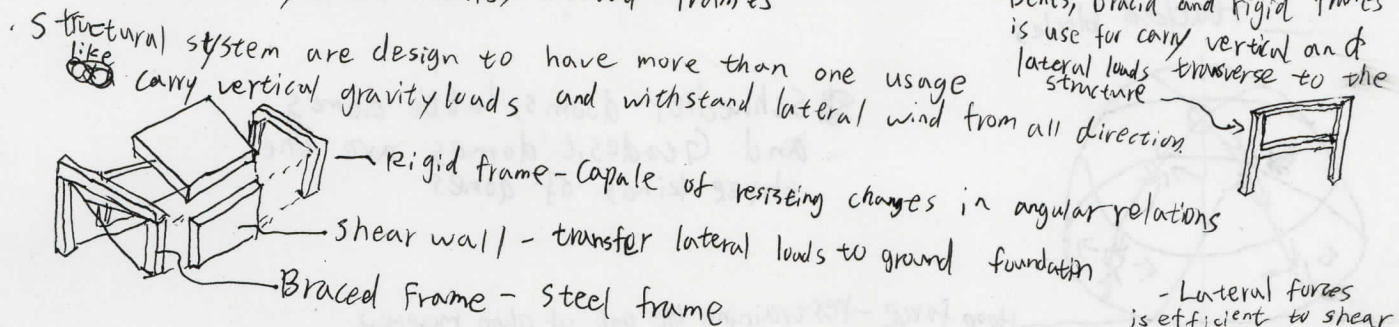 frames
. Structural system are design to have more than one usage
like
carry vertical gravity loads and withstand lateral wind from all direction.
Rigid frame - Capale of resisting changes in angular relations
Shear wall - transfer lateral loads to ground foundatin
Braced Frame - Steel frame
Bents, bracid and rigid frames
is use for carry vertical and
lateral loads transverse to the
structure
- Lateral forces
is efficient to shear